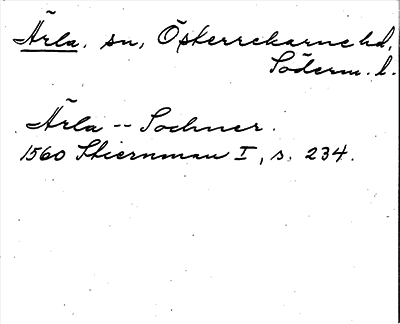 Ärla, sn, Österrekarne hd,
Söderm. l.
Ärla -- Sochner.
1560 Stiernman I, s. 234.